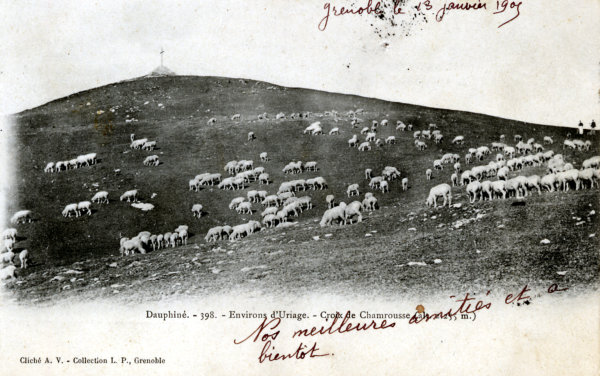 Grenoble le 13 janvier 1905
Dauphiné. - 398. - Environs d'Uriage. - Croix de Chamrousse (alt. m.)
Nos meilleures amitiés et a
bientot.
Cliché A. V. - Collection L. P., Grenoble